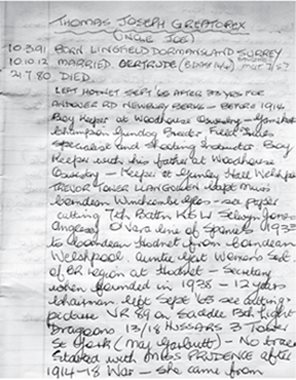 THOMAS JOSEPH GREATOREX
(UNCLE JOE)
10.3.91 BORN LINGFIELD DORMANSLAND SURREY
10.10.12 MARRIED GERTRUDE
21.7.80 DIED
LEFT HODNET SEPT '65 AFTER 33 YRS FOR
ANDOVER RD NEWBURY BERKS - BEFORE 1914
Boy Keeper at Woodhouse Oswestry -
Champion Gundog Breeder, Field Trials
Specialist and Shooting Instructor. Boy
Keeper with his father at Woodhouse
Oswestry - Keeper at Gunley Hall Welshpool
TREVOR TOWER LLANGOLLEN Kept Miss
Corndean Winchcombe Glos - see paper
cutting 7th Battn KSLI Selwyn Jones
Anglesey O'Vara line of Spaniels 1933
to Hodnet from Corndean
Welshpool. Auntie Gert Womens Sect.
of BR Legion at Hodnet - Secretary
when founded in 1938 - 12 years
Chairman. Left Sept '65 see cutting &
picture VR 89 on Saddle 13th Light
Dragoons 13/18 HUSSARS 3 Tower
St York (May Garbutt) - No trace
Started with MISS PRUDENCE after
1914-18 War - She came from